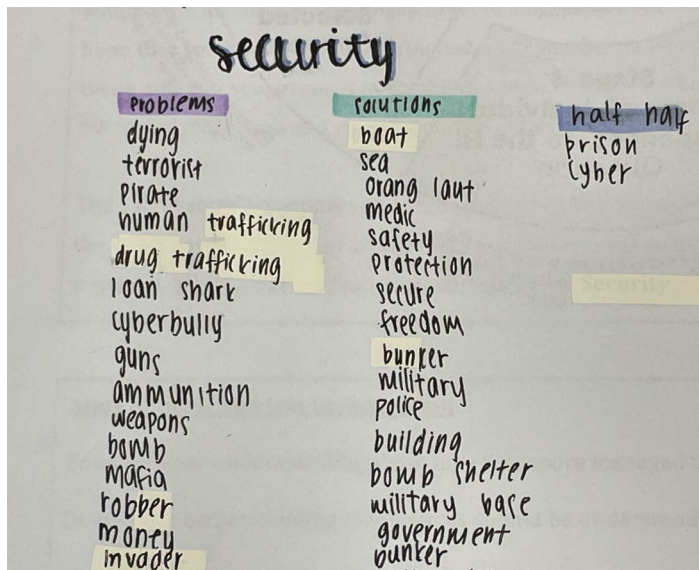 security
problems
dying
terrorist
pirate
human trafficking
drug trafficking
loan shark
cyberbully
guns
ammunition
weapons
bomb
mafia
robber
money
invader
solutions
boat
sea
orang laut
medic
safety
protection
secure
freedom
bunker
military
police
building
bomb shelter
military base
government
bunker
half half
prison
cyber